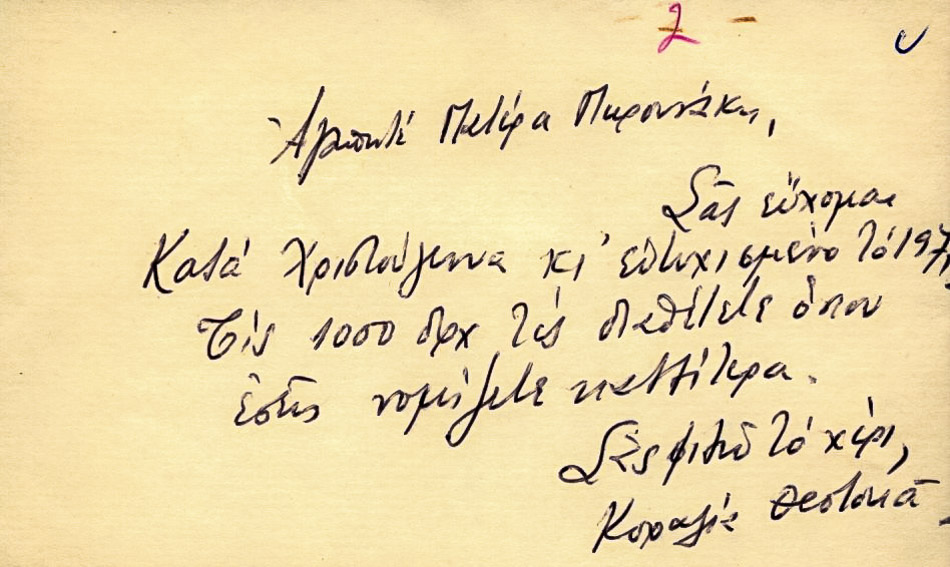 2
Ἀγαπητέ Πατέρα Πυρουνάκη,
Σᾶς εὔχομαι
Καλά Χριστούγεννα κι' εὐτυχισμένο τό 197
Τίς 1000 δρχ τίς διαθέτετε ὅπου
ἐσεῖς νομίζετε καλλίτερα.
Σᾶς φιλῶ τό χέρι,
Κοραλία Θεοτοκᾶ